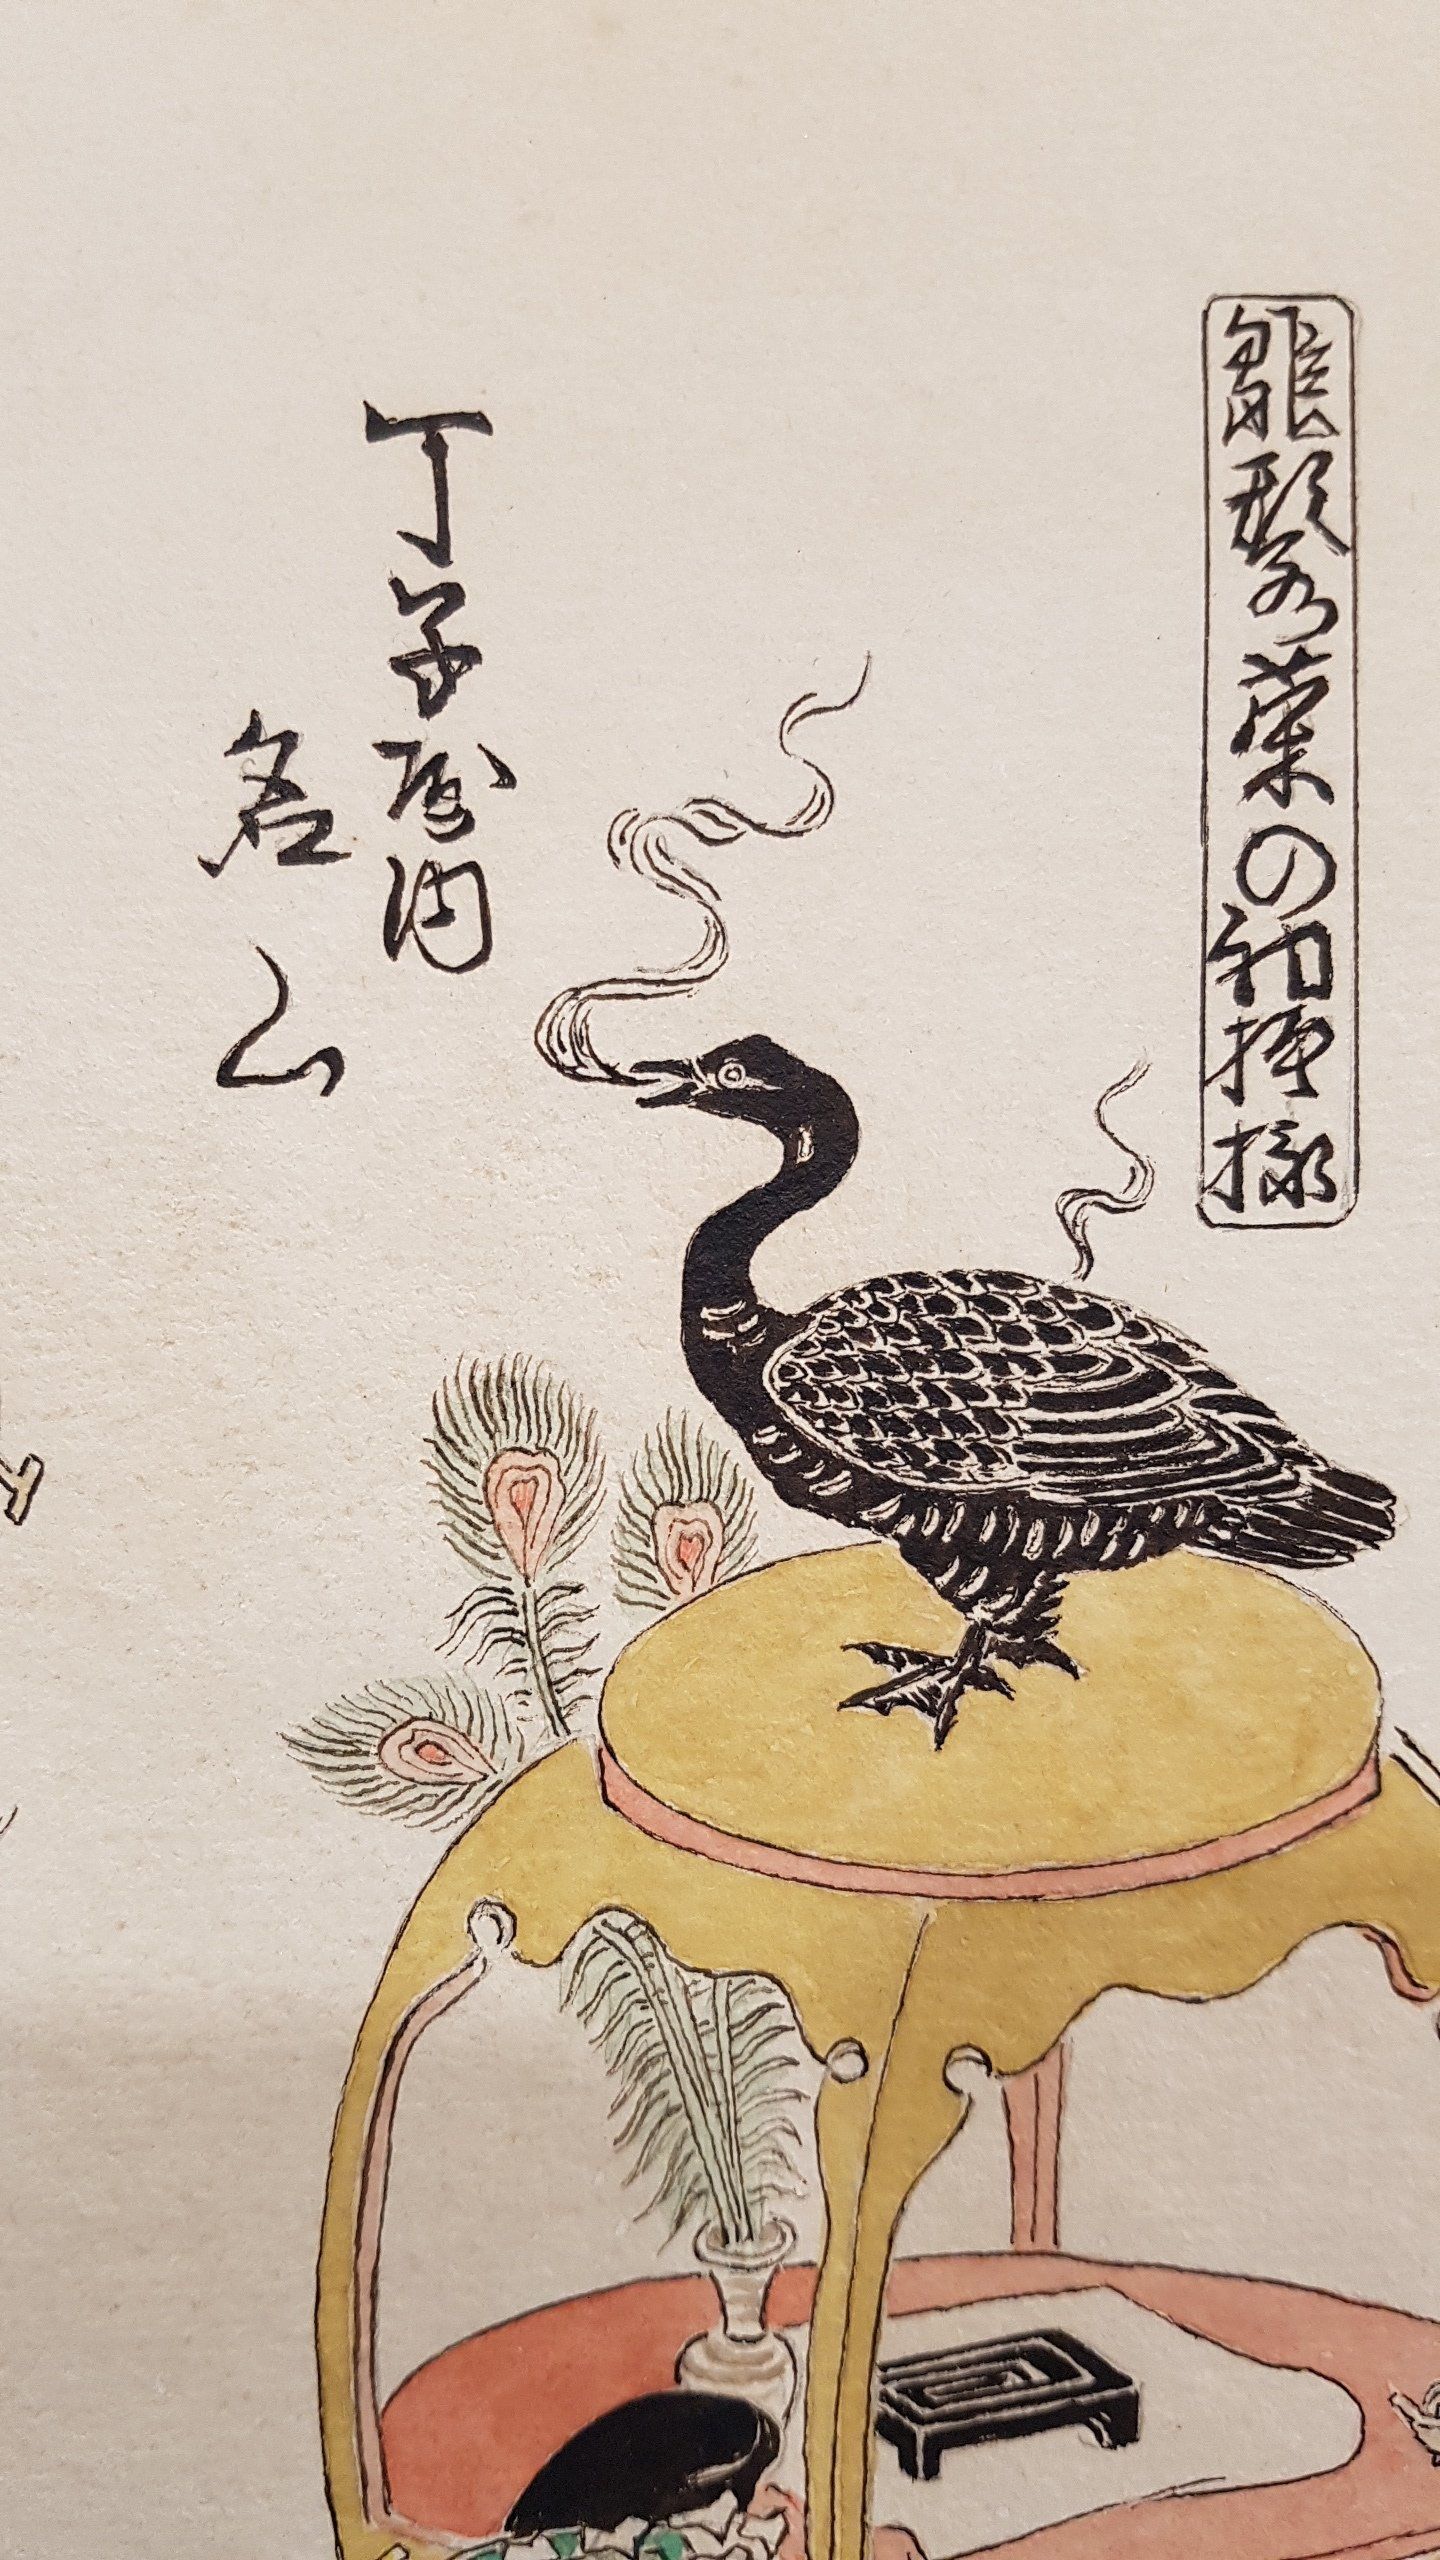 雛形若菜の初模様
丁子屋内
名山